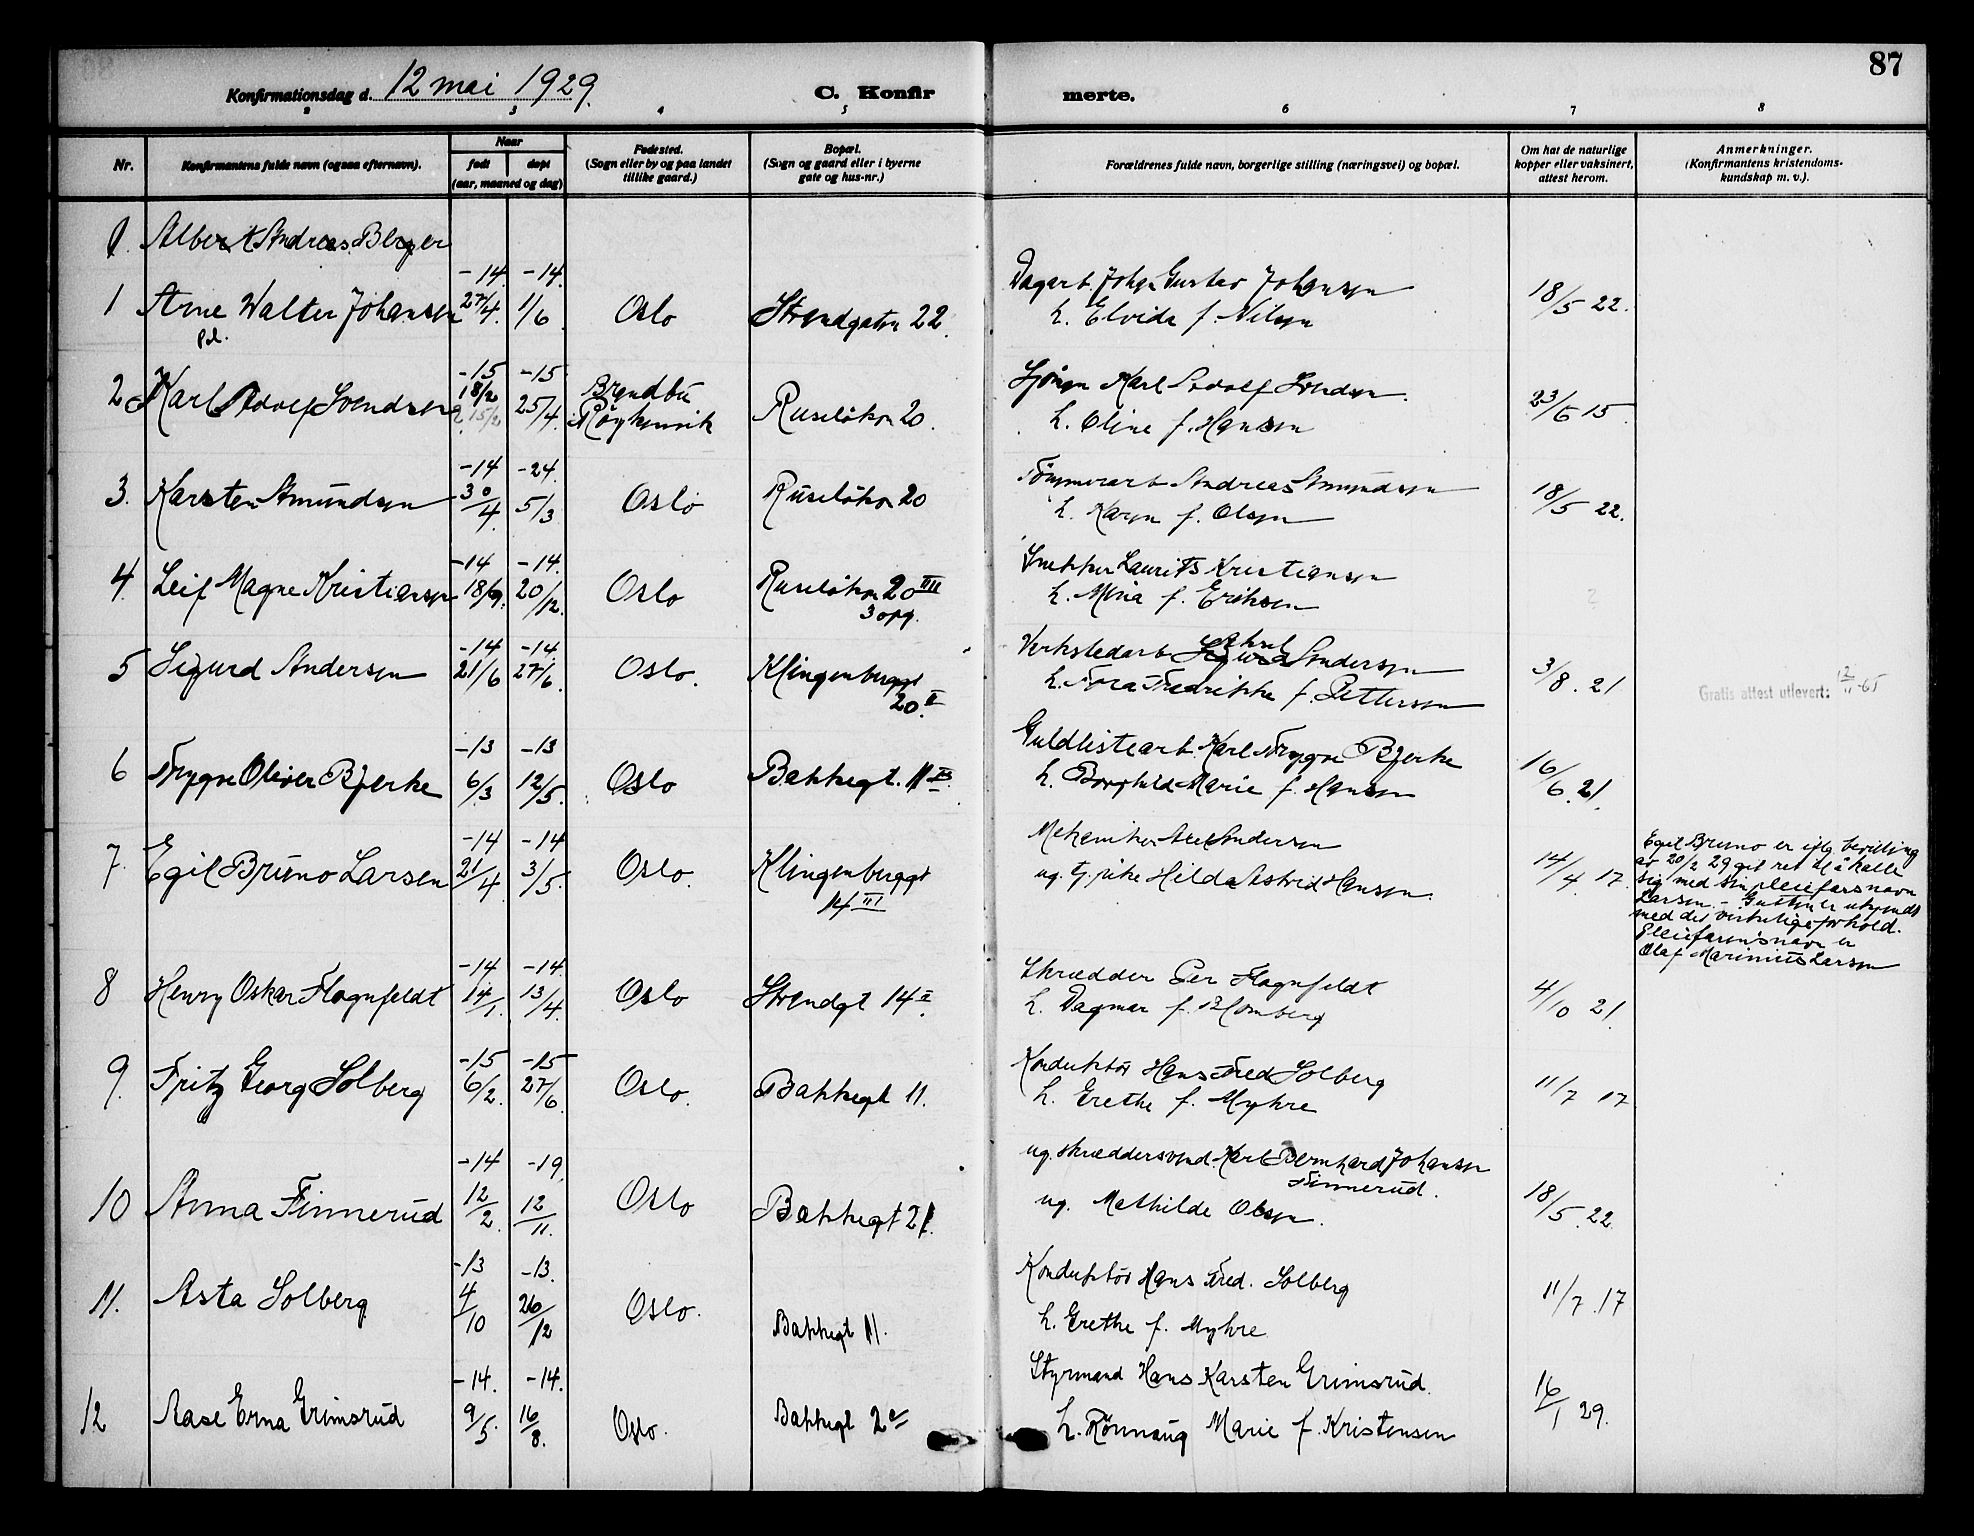 87
Konfirmationsdag d. 12 mai 1929.
C. Konfirmerte.
2 3 4 5 6 7 8
Nr.
Konfirmantens fulde navn (ogsaa efternavn).
Naar
født
døpt
(aar, maaned og dag)
Fødested.
(Sogn eller by og paa landet
tillike gaard.)
Bopæl.
(Sogn og gaard eller i byerne
gate og hus-nr.)
Forældrenes fulde navn, borgerlige stilling (næringsvei) og bopæl.
Om har de naturlige
kopper eller vaksinert,
attest herom.
Anmerkninger.
(Konfirmantens kristendoms-
kundskap m. v.).
1. Albert Andreas Berger
-14 -14.
1 Arne Walter Johansen 27/4. 1/6. Oslo Strandgaten 22.
Dagarb. Johan Gustav Johansen
h. Elvida f. Nilsen
18/5 22.
-15 -15
2 Karl Adolf Svendsen 18/2 25/4. Brandbu
Røykenvik
Ruseløkv 20.
Karl Adolf Svendsen.
h. Oline f. Hansen
23/6 15.
-14 -24.
3. Karsten Amundsen 30/4. 5/3 Oslo Ruseløkv 20
Tømmerarb Andreas Amundsen
h. Karen f. Olsen
18/5 22.
-14 -14.
4. Leif Magne Kristiansen 18/9. 20/12. Oslo Ruseløkv 20 IIII
3 opg.
Snekker Laurits Kristiansen
h. Mina f. Eriksen
-14 -14
5 Sigurd Andersen 21/6 27/6. Oslo. Klingenberggt
20. II
Verkstedarb Sigurd Andersen
h. Tora Fredrikke f. Pettersen
3/8. 21.
Gratis attest utlevert: 12/11-65
-13 -13
6 Trygve Oliver Bjerke 6/3 12/5. Oslo Bakkegt. 11 III
Guldlistearb. Karl Trygve Bjerke
h. Borghild Marie f. Hansen
16/6. 21.
-14 -14
7. Egil Bruno Larsen 21/4. 3/5. Oslo. Klingenberggt
14 III
Mekaniker Andersen
ug. tj. pike Hilda Astrid Hansen.
14/4 17.
Egil Bruno er iflg bevilling
av 20/2 29 git ret til å kalle
sig med sin pleiefars navn
Larsen. - Gutten er ukjendt
med det virkelige forhold.
Pleiefarens navn er
Olaf Marinius Larsen
-14 -14.
8 Henry Oskar Flognfeldt 14/1. 13/4. Oslo Strandgt 14 II.
Skrædder Per Flognfeldt
h. Dagmar f. Blomberg
4/10 21.
-15 -15
9. Fritz Georg Solberg 6/2. 27/6. Oslo. Bakkegt 11.
Konduktør Hans Fred Solberg
h. Grethe f. Myhre
11/7 17
-14 -19.
10 Anna Finnerud 12/2. 12/11. Oslo Bakkegt 21.
ug. skræddersvend. Karl Bernhard Johansen
Finnerud.
ug. Mathilde Olsen.
18/5. 22.
-13 -13.
11. Asta Solberg 4/10 26/12 Oslo. Bakkegt 11.
Konduktør Hans Fred. Solberg
h. Grethe f. Myhre
11/7. 17
-14. -14.
12 Aase Erna Grimsrud 9/5. 16/8. Oslo. Bakkegt 2
Styrmand Hans Karsten Grimsrud.
h. Rønnaug Marie f. Kristensen
16/1 29.